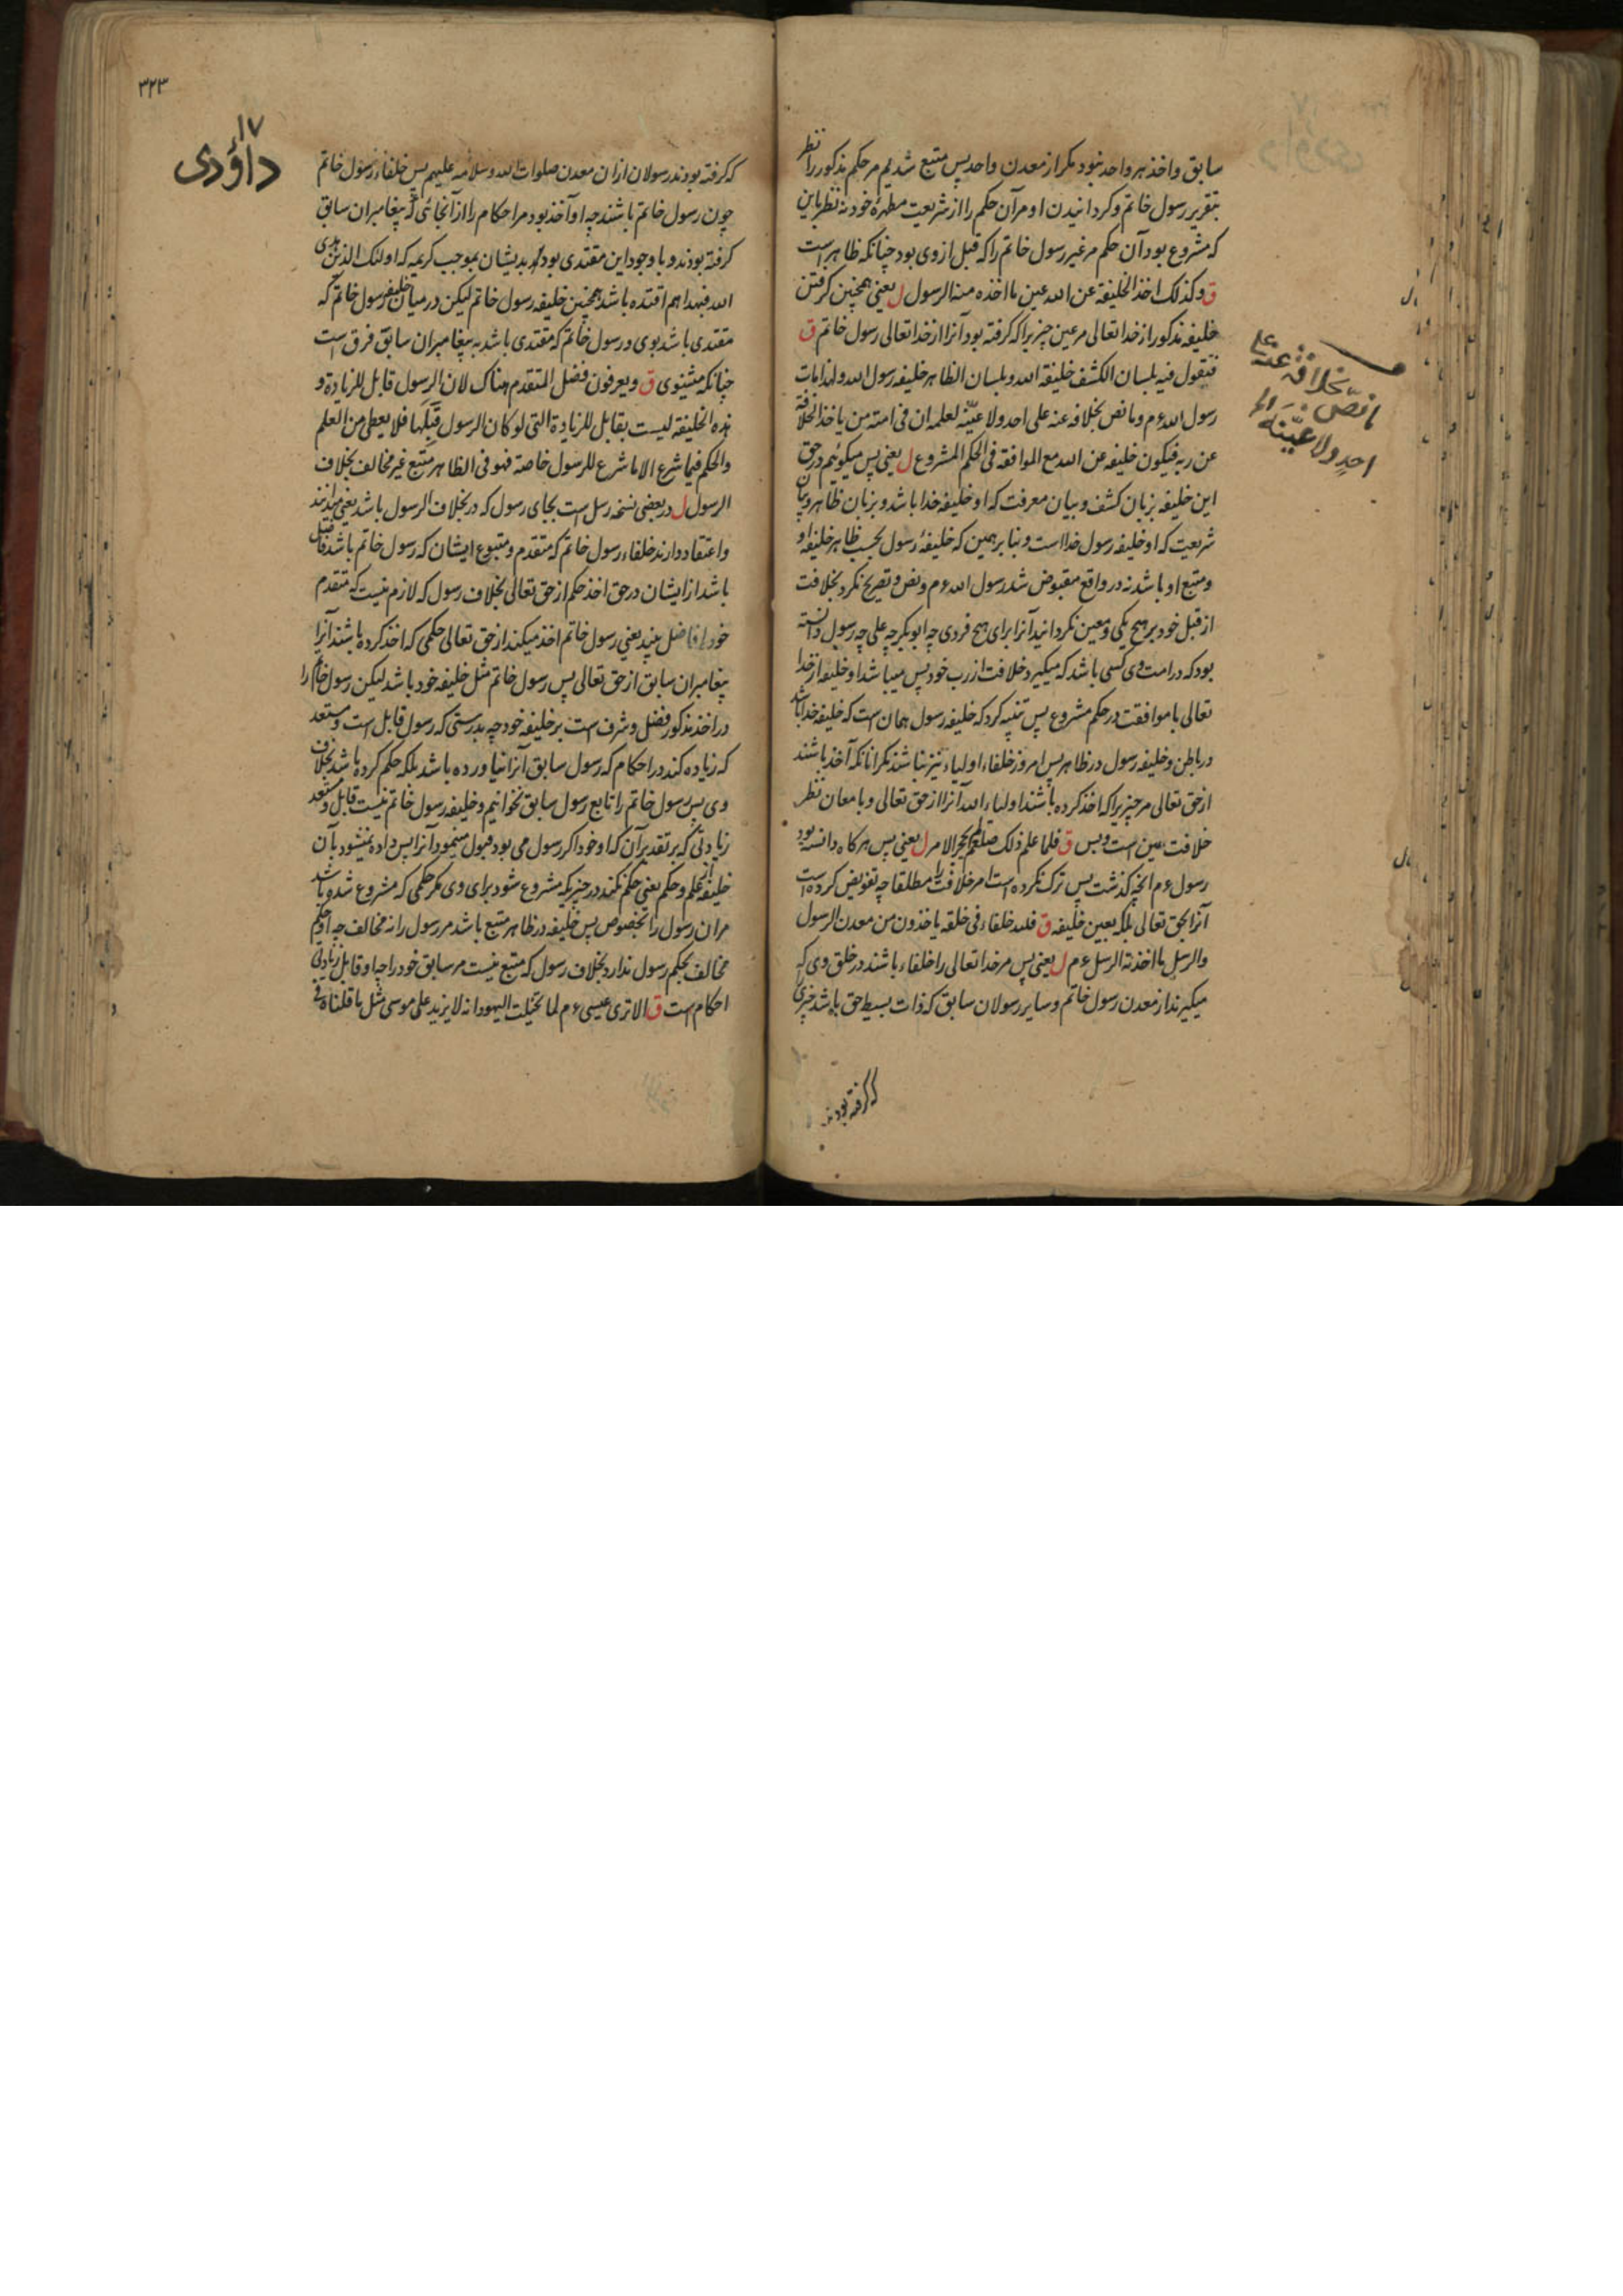 سابق واخذ هر واحد نبود مگر از معدن واحد پس متبع شدیم مر حکم مذکور را نظر
بتقریر رسول خاتم و کردانیدن او مر آن حکم را از شریعت مطهرهٔ خود نه نظر باین
که مشروع بود آن حکم مر غیر رسول خاتم را که قبل از وی بود چنانکه ظاهر است
ق وکذلک اخذ الخلیفة عن الله عین ما اخذه منه الرسول ل یعنی همچنین کرفتن
خلیفه مذکور از خدا تعالی مر عین چیزیرا که کرفته بود آنرا از خدا تعالی رسول خاتم ق
فنقول فیه بلسان الکشف خلیفة الله وبلسان الظاهر خلیفه رسول الله ولهذا مات
رسول الله ءم وما نص بخلافه عنه علی احد ولا عیّنه لعلمه ان فی امته من یاخذ الخلافة
عن ربه فیکون خلیفه عن الله مع الموافقه فی الحکم المشروع ل یعنی پس میکوئیم در حق
این خلیفه بزبان کشف و بیان معرفت که او خلیفه خدا باشد و بزبان ظاهر و بیان
شریعت که او خلیفه رسول خدا است و بنا بر همین که خلیفهٔ رسول بحسب ظاهر خلیفه او
ومتبع او باشد نه در واقع مقبوض شد رسول الله ءم و نص و تصریح نکرد بخلافت
از قبل خود بر هیچ یکی و معین نکردانید آنرا برای هیچ فردی چه ابوبکر چه علی چه رسول دانسته
بود که در امت وی کسی باشد که میکیرد خلافت از رب خود پس میباشد او خلیفه از خدا
تعالی با موافقت در حکم مشروع پس تنبیه کرد که خلیفه رسول همان است که خلیفه خدا باشد
در باطن و خلیفه رسول در ظاهر پس امروز خلفاء اولیاء نیز نباشند مکر انانکه آخذ باشند
از حق تعالی مر چیزیرا که اخذ کرده باشند اولیاء الله آنرا از حق تعالی و بامعان نظر
خلافت همین است و بس ق فلما علم ذلک صلعم لم یحجر الامر ل یعنی پس هرکاه دانسته بود
رسول ءم انچه کذشت پس ترک نکرده است امر خلافت را مطلقا چه تفویض کرده است
آنرا بحق تعالی بلکه بعین خلیفه ق فلله خلفاء فی خلقه یاخذون من معدن الرسول
والرسل ما اخذته الرسل ءم ل یعنی پس مر خدا تعالی را خلفاء باشند در خلق وی که
میکیرند از معدن رسول خاتم و سایر رسولان سابق که ذات بسیط حق باشد چیزی
که کرفته بودند
ما نصّ بخلافة عنه علی
احدٍ ولا عیّنه
۳۲۳
۱۷
داؤدی
که کرفته بودند رسولان ازان معدن صلوات الله وسلامه علیهم پس خلفاء رسول خاتم
چون رسول خاتم باشند چه او آخذ بود مر احکام را از آنجائی که پیغامبران سابق
کرفته بودند و با وجود این مقتدی بود بدیشان بموجب کریمه که اولئک الذین هدی
الله فبهداهم اقتده باشد همچنین خلیفه رسول خاتم لیکن در میان خلیفه رسول خاتم که
مقتدی باشد بوی و رسول خاتم که مقتدی باشد به پیغامبران سابق فرق است
چنانکه میشنوی ق ویعرفون فضل المتقدم هناک لان الرسول قابل للزیادة و
هذه الخلیفه لیست بقابل للزیادة التی لو کان الرسول قَبِلَها فلا یعطی من العلم
والحکم فیما شرع الا ما شرع للرسول خاصة فهو فی الظاهر متبع غیر مخالف بخلاف
الرسول ل در بعضی نسخه رسل است بجای رسول که در بخلاف الرسول باشد یعنی میدانند
واعتقاد دارند خلفاء رسول خاتم که متقدم و متبوع ایشان که رسول خاتم باشد فاضل
باشد از ایشان در حق اخذ حکم از حق تعالی بخلاف رسول که لازم نیست که متقدم
خود را فاضل بیند یعنی رسول خاتم اخذ میکند از حق تعالی حکمی که اخذ کرده باشند آنرا
پیغامبران سابق از حق تعالی پس رسول خاتم مثل خلیفه خود باشد لیکن رسول خاتم را
در اخذ مذکور فضل و شرف است بر خلیفه خود چه بدرستی که رسول قابل است و مستعد
که زیاده کند در احکام که رسول سابق آنرا نیاورده باشد بلکه حکم کرده باشد بخلاف
وی پس رسول خاتم را تابع رسول سابق نخوانیم و خلیفه رسول خاتم نیست قابل و مستعد
زیادتی که بر تقدیر آن که او خود اکر رسول می بود قبول مینمود آنرا پس داده نمیشود بآن
خلیفه علم و حکم یعنی حکم نکند در چیزیکه مشروع شود برای وی مکر حکمی که مشروع شده باشد
مر ان رسول را بخصوص پس خلیفه در ظاهر متبع باشد مر رسول را نه مخالف چه او حکم
مخالف بحکم رسول ندارد بخلاف رسول که متبع نیست مر سابق خود را چه او قابل زیادتی
احکام است ق الا تری عیسی ءم لما تخیلت الیهود انه لا یزید علی موسی مثل ما قلناه فی